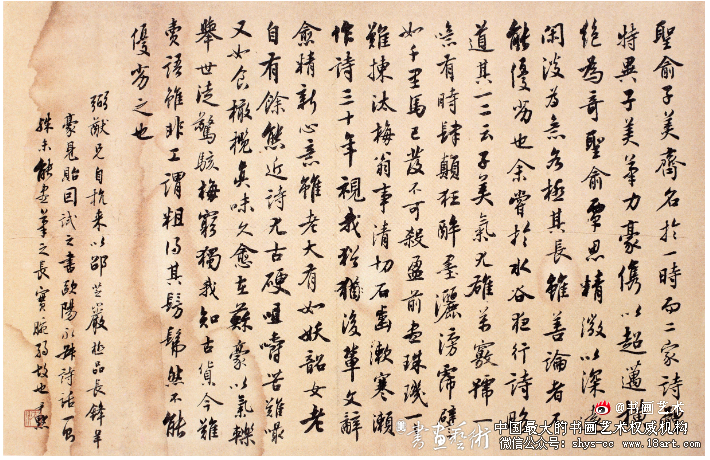 聖俞子美齊名於一時而二家詩體
特異子美筆力豪儁以超邁橫
絕為奇聖俞覃思精微以深遠
閑淡為意各極其長雖善論者不
能優劣也余嘗於水谷夜行詩略
道其一二云子美氣尤雄萬竅號一
噫有時肆顛狂醉墨灑滂霈譬
如千里馬已發不可殺盈前盡珠璣一一
難揀汰梅翁事清切石齒漱寒瀨
作詩三十年視我犹猶後輩文辭
愈精新心意雖老大有如妖韶女老
自有餘態近詩尤古硬咀嚼苦難嘬
又如食橄欖真味久愈在蘇豪以氣轢
舉世徒驚駭梅窮獨我知古貨今難
賣語雖非工謂粗得其髣髴然不能
優劣之也
弼猷兄自杭來以邵芝巖極品長鋒羊
豪見貽因試之書歐陽永叔詩話一則
殊未能盡筆之長實腕弱故也 尹默
@书画艺术
書画藝術
中国最大的书画艺术权威机构
微信公众号: shys-cc www.18art.com